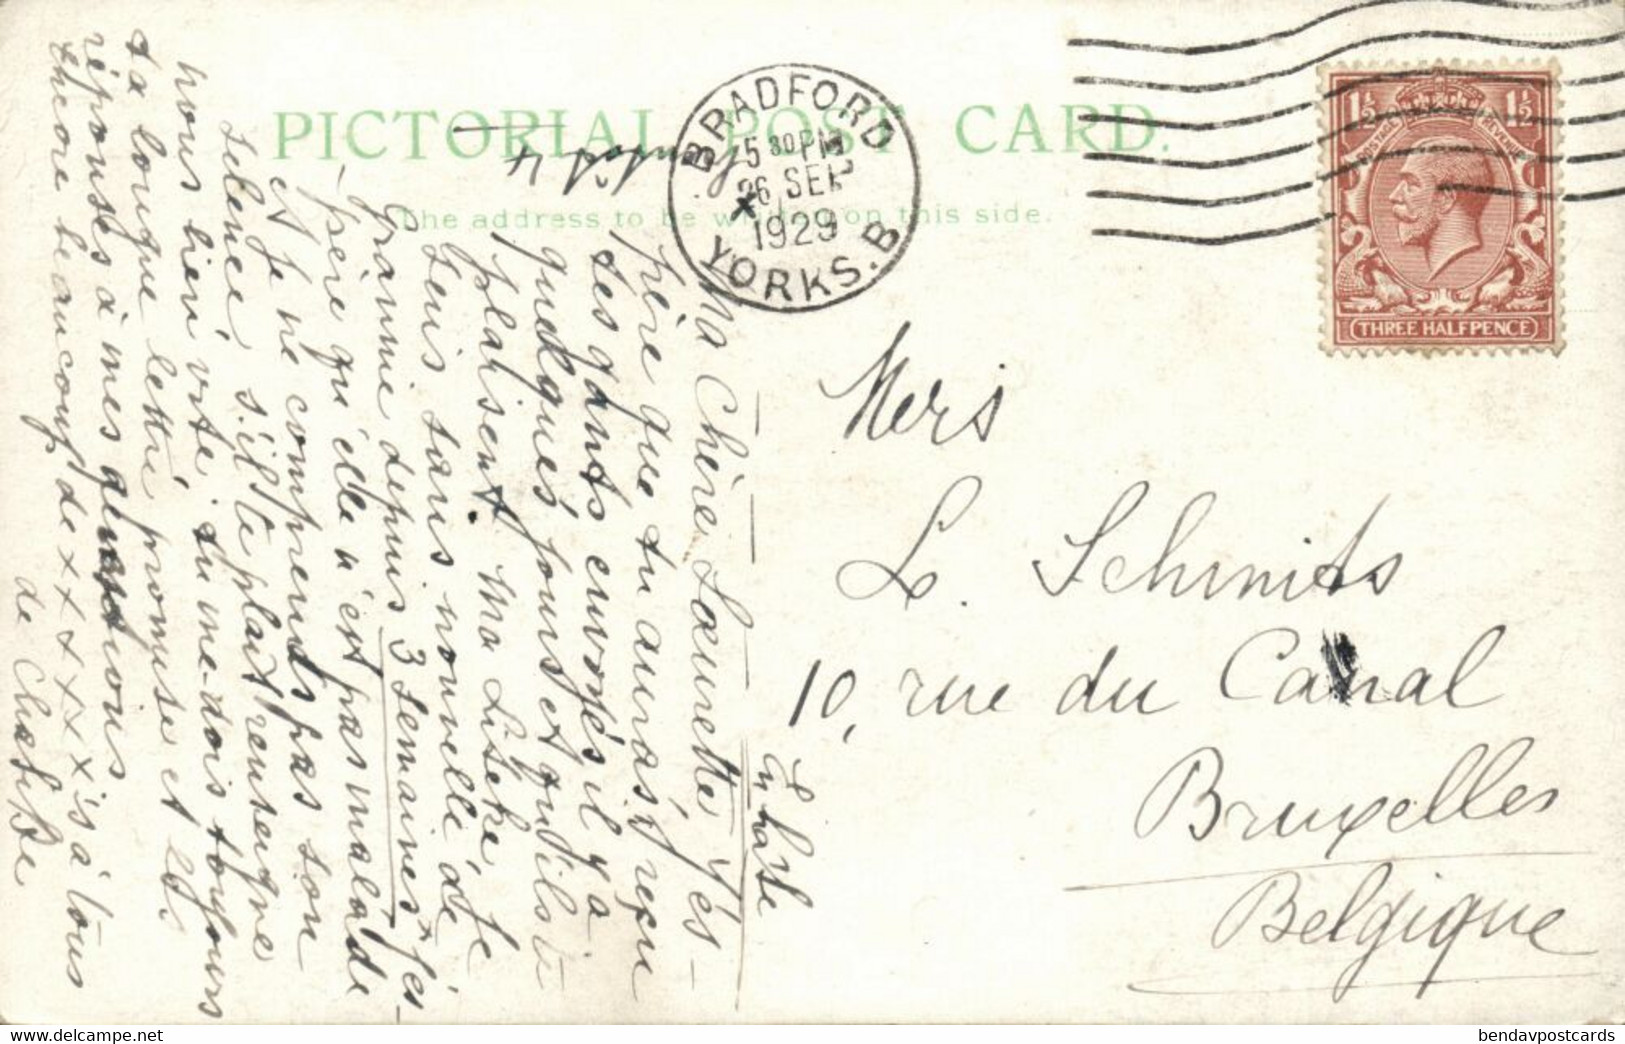 PICTORIAL POST CARD.
The address to be written on this side.
BRADFORD
5 30 PM
26 SEP
1929
YORKS. B
1½ 1½
POSTAGE REVENUE
THREE HALFPENCE
Mers
L. Schmits
10, rue du Canal
Bruxelles
Belgique
Ma Chère Laurette, J'és-
père que tu auras reçu
les gants envoyés il y a
quelques jours et qu'ils te
plaisent. Ma Liseke! Je
suis sans nouvelle de
grannie depuis 3 Semaines
père qu'elle n'est pas malade
et je ne comprends pas son
silence, s'il te plait renseigne
nous bien vite, tu me dois toujours
ta longue lettre promise et les
réponses à mes questions
encore beaucoup de x x x x x x x's à tous
de Chabse
bendavpostcards